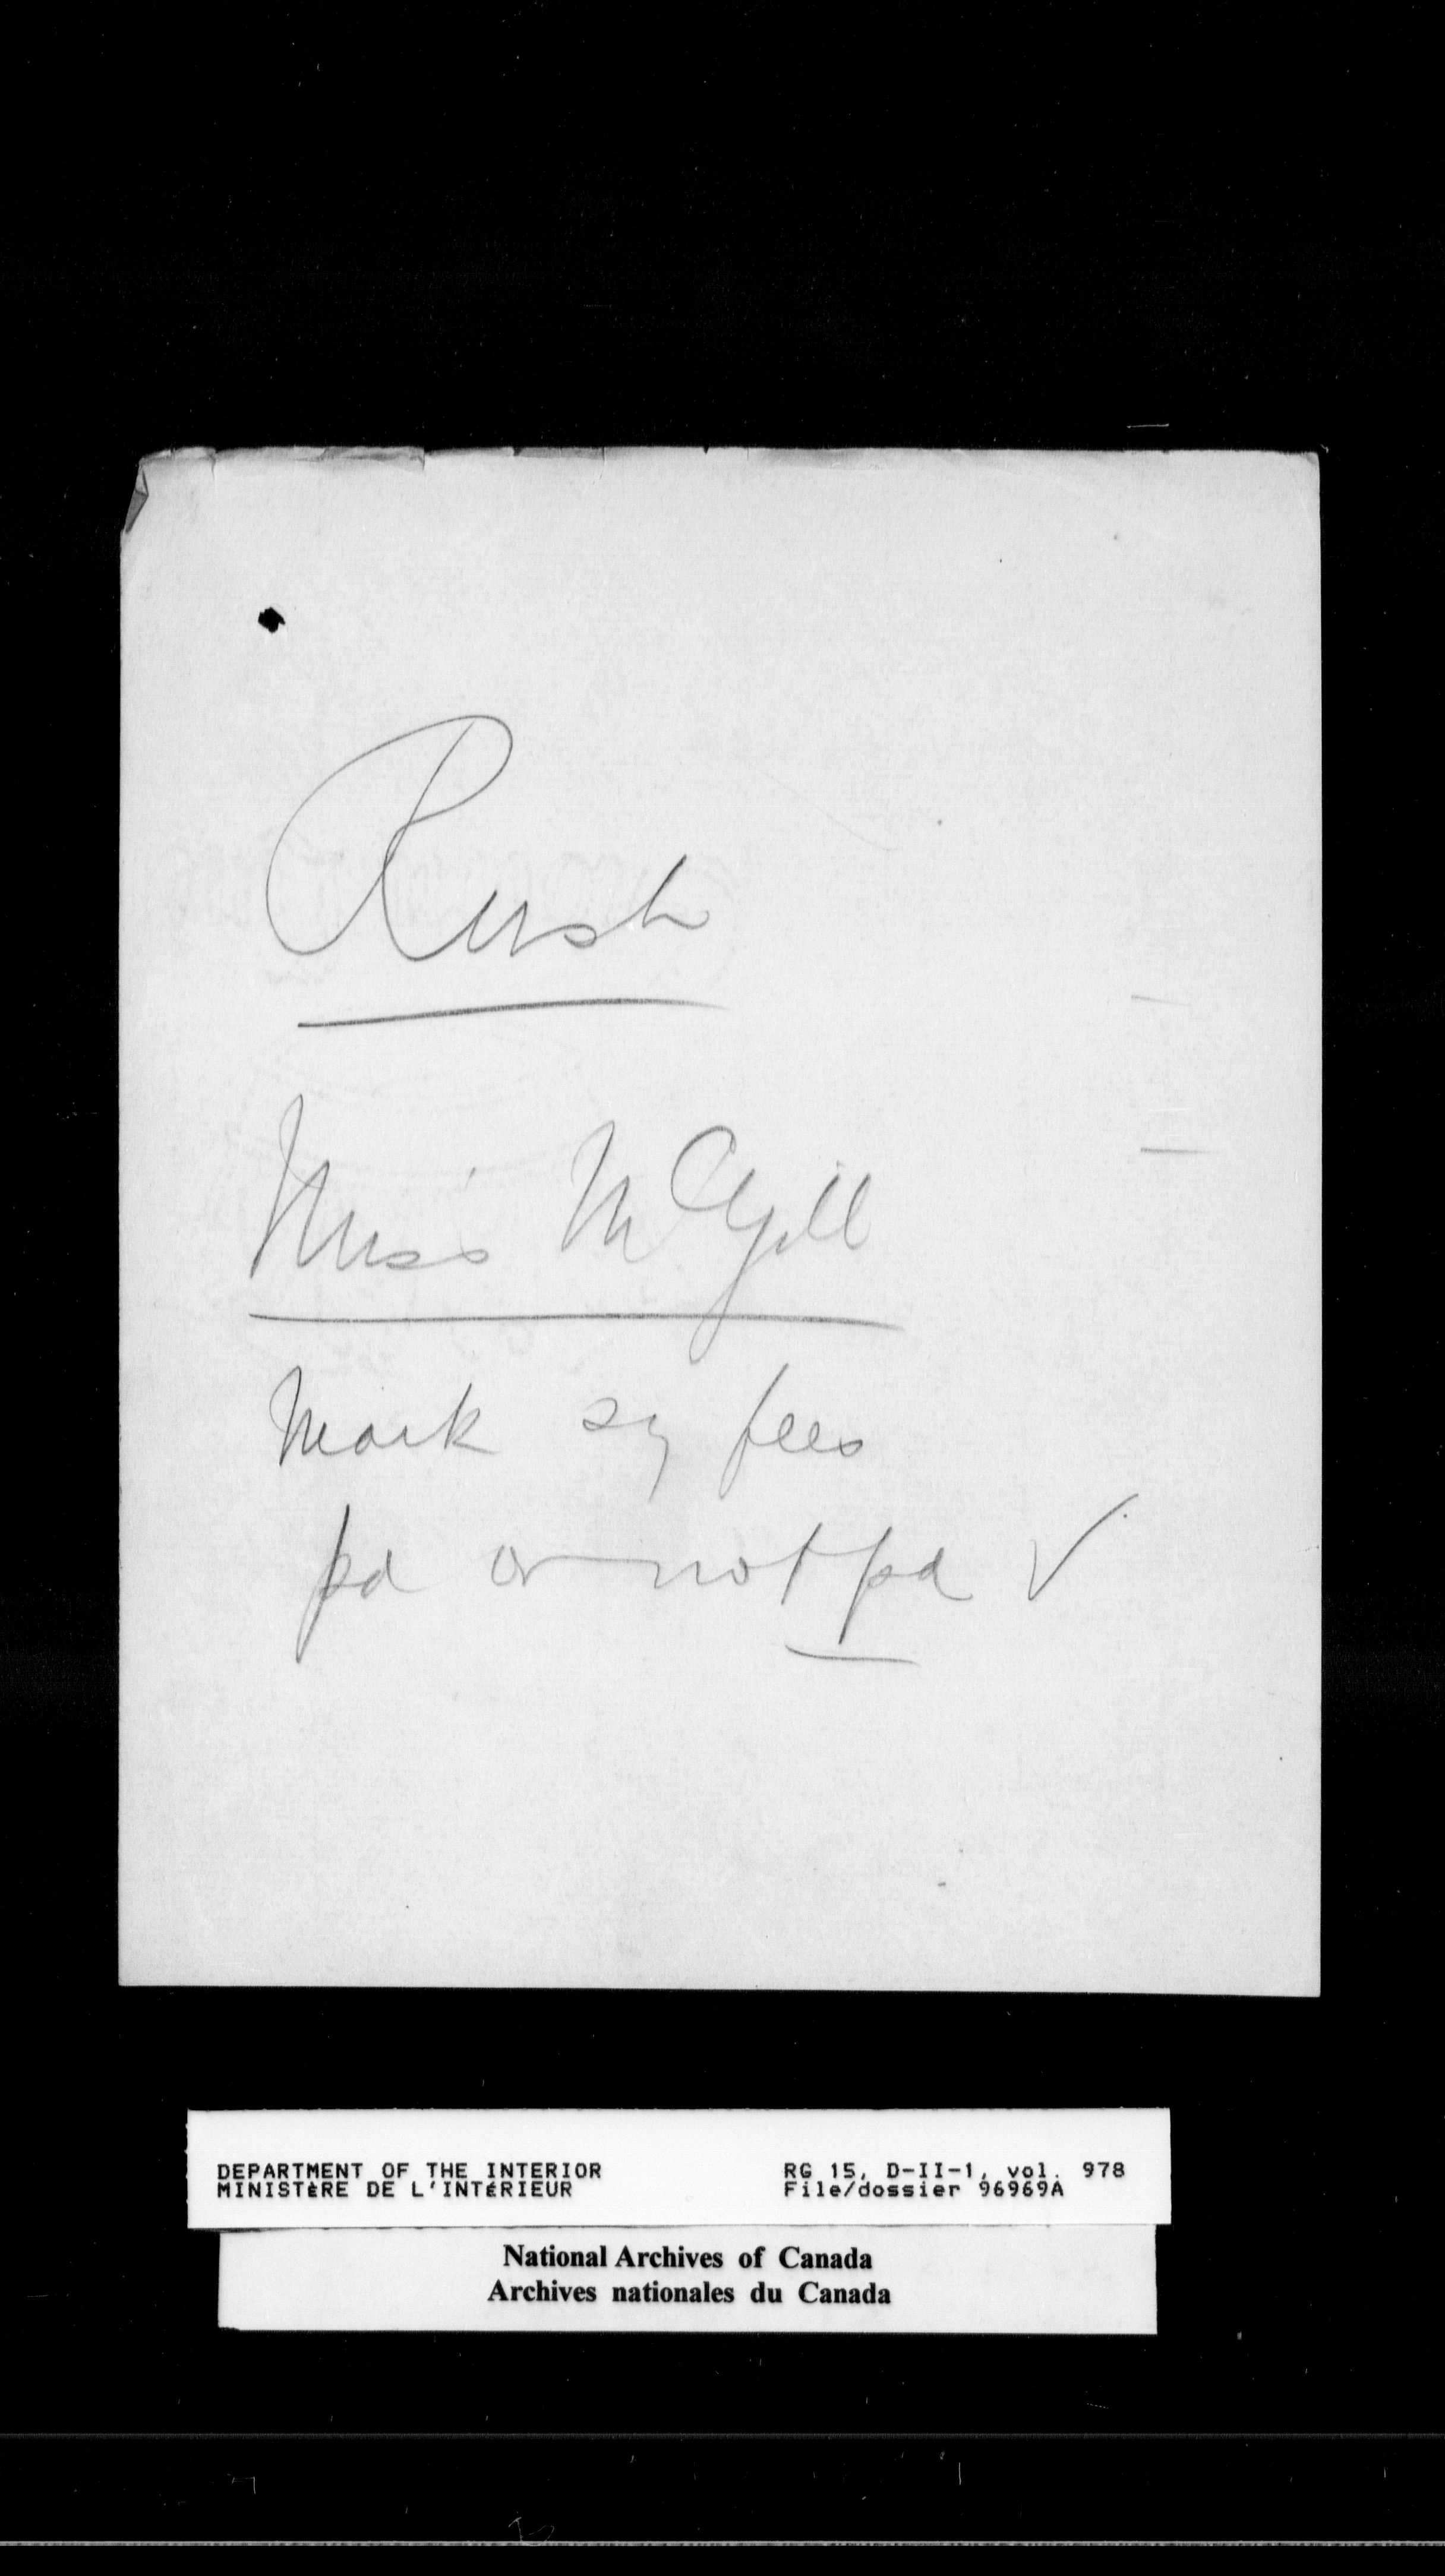 Rush
Miss McGill
Mark sy fees
pd or not pd ✓
DEPARTMENT OF THE INTERIOR
MINISTÈRE DE L'INTÉRIEUR
RG 15, D-II-1, vol. 978
File/dossier 96969A
National Archives of Canada
Archives nationales du Canada